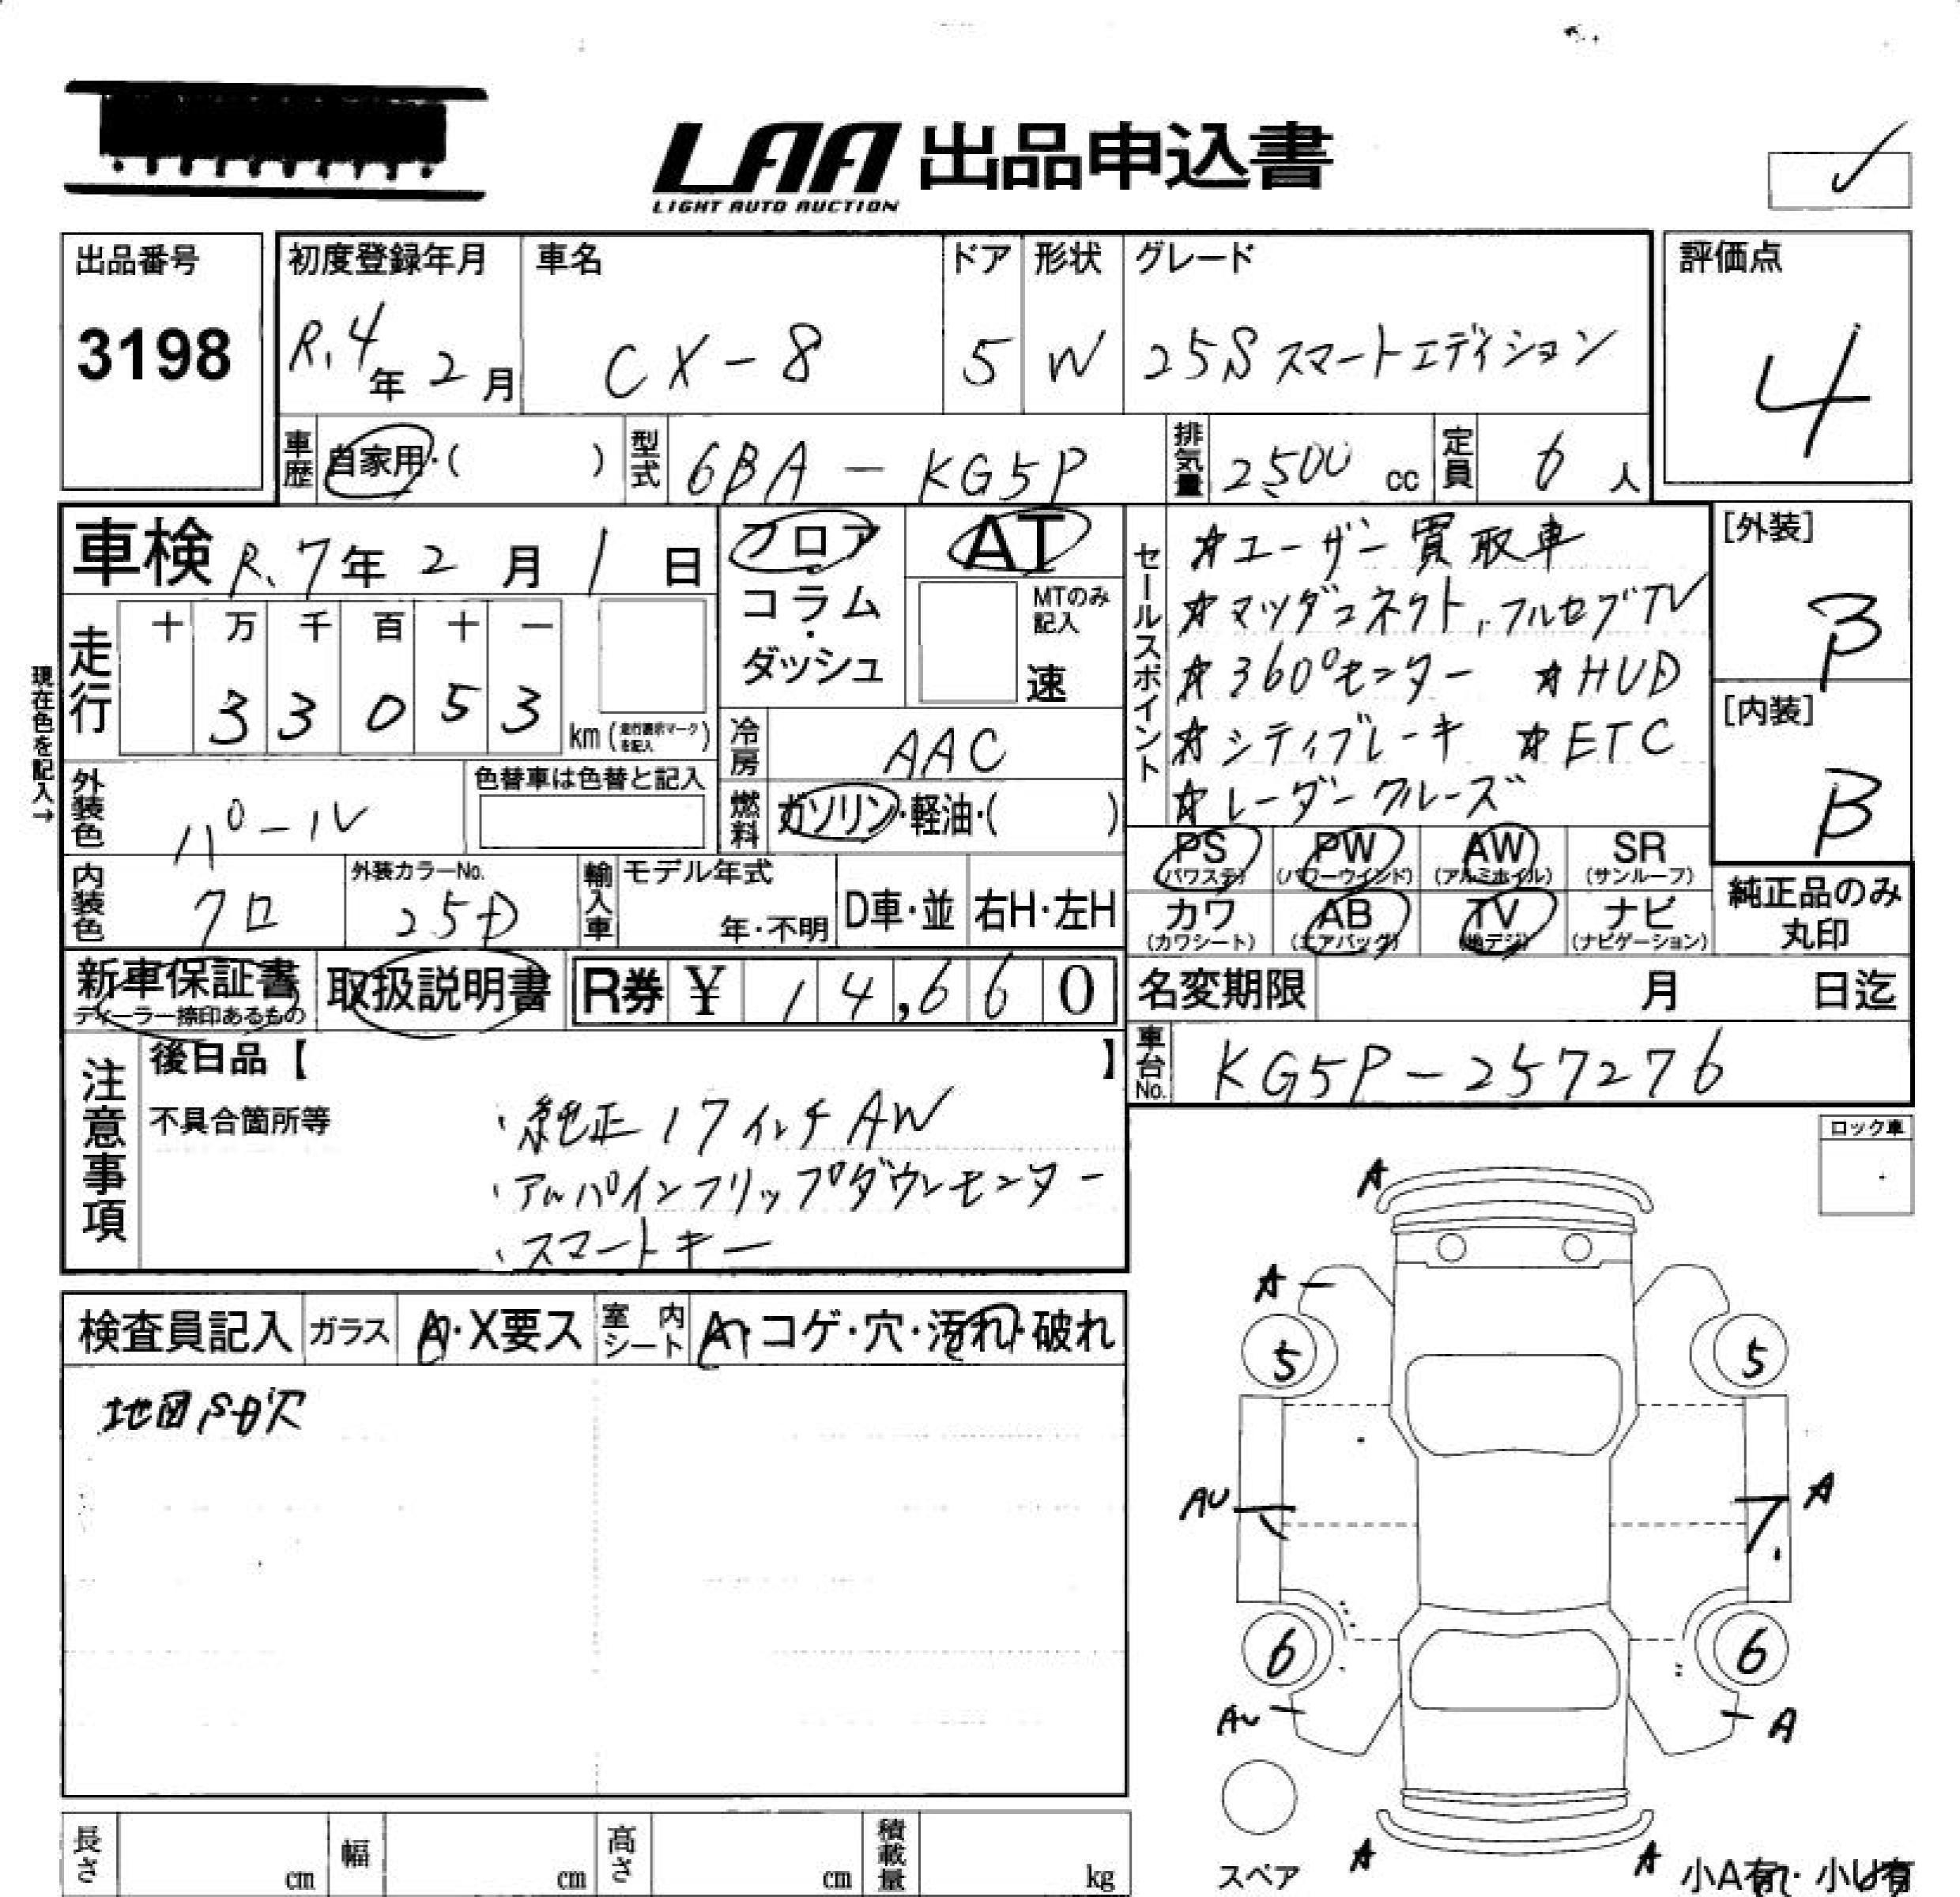 LAA 出品申込書
LIGHT AUTO AUCTION
✓
出品番号
3198
初度登録年月
R.4年2月
車名
CX-8
ドア
5
形状
W
グレード
25S スマートエディション
評価点
4
車歴
自家用・( )
型式
6BA-KG5P
排気量
2500 cc
定員
6人
車検 R.7年2月1日
フロア
コラム
・
ダッシュ
AT
MTのみ
記入
速
セールスポイント
☆ユーザー買取車
☆マツダコネクト,フルセグTV
☆360°モニター ☆HUD
☆シティブレーキ ☆ETC
☆レーダークルーズ
[外装]
B
[内装]
B
現在色を記入→
走行
十 万 千 百 十 一
33053
km(走行表示マークを記入)
冷房
AAC
外装色
パール
色替車は色替と記入
燃料
ガソリン・軽油・( )
PS
(パワステ)
PW
(パワーウインド)
AW
(アルミホイル)
SR
(サンルーフ)
内装色
クロ
外装カラーNo.
25D
輸入車
モデル年式
年・不明
D車・並
右H・左H
カワ
(カワシート)
AB
(エアバッグ)
TV
(地デジ)
ナビ
(ナビゲーション)
純正品のみ
丸印
新車保証書
ディーラー捺印あるもの
取扱説明書
R券 ¥ 14,660
名変期限 月 日迄
車台No.
KG5P-257276
注意事項
後日品【 】
不具合箇所等
・純正17インチAW
・アルパインフリップダウンモニター
・スマートキー
ロック車
検査員記入
ガラス
A・X要ス
室内
シート
A・コゲ・穴・汚れ・破れ
地図SD欠
A
A
5
5
AU
A
6
6
AU
A
A
A
スペア
小A有・小U有
長さ cm
幅 cm
高さ cm
積載量 kg